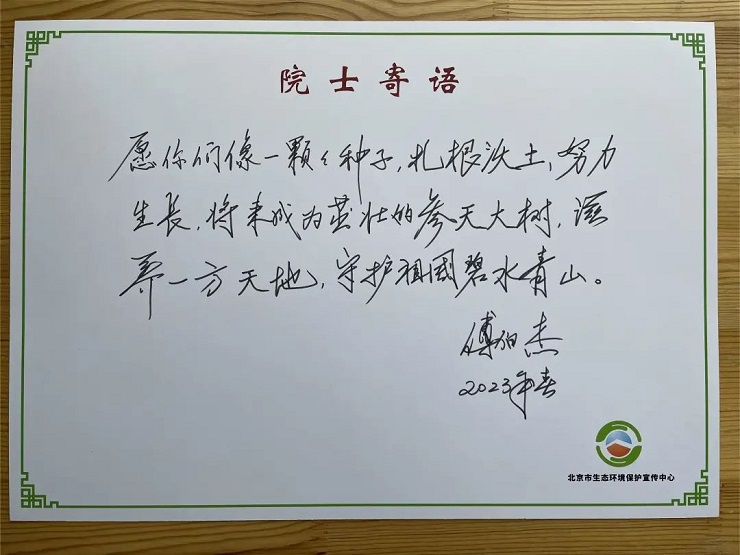 院士寄语
愿你们像一颗々种子,扎根沃土,努力
生长,将来成为茁壮的参天大树,滋
养一方天地,守护祖国碧水青山。
傅伯杰
2023年春
北京市生态环境保护宣传中心